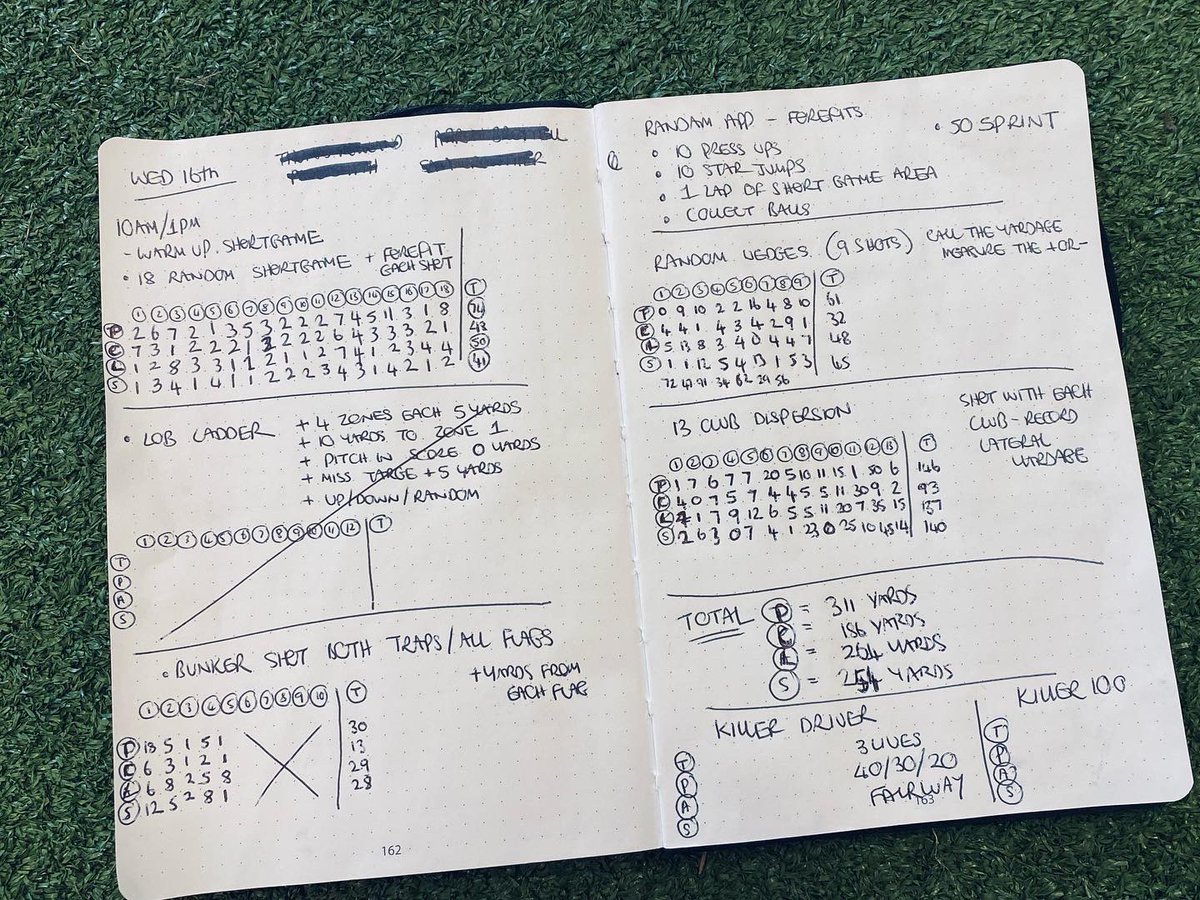 WED 16th
10AM/1PM
- WARM UP. SHORTGAME
• 18 RANDOM SHORTGAME + FOREFIT EACH SHOT
1 2 3 4 5 6 7 8 9 10 11 12 13 14 15 16 17 18 T
P 2 6 7 2 1 3 5 3 2 2 2 7 4 5 11 3 1 8 74
7 3 1 2 2 2 1 2 2 2 2 6 4 3 3 3 2 1
1 2 8 3 3 1 1 2 1 1 2 7 4 1 2 3 4 4 50
S 1 3 4 1 4 1 1 2 2 2 3 4 3 1 4 2 1 2 41
• LOB LADDER
+ 4 ZONES EACH 5 YARDS
+ 10 YARDS TO ZONE 1
+ PITCH IN SCORE 0 YARDS
+ MISS TARGE +5 YARDS
+ UP/DOWN/RANDOM
1 2 3 4 5 6 7 8 9 10 11 12 T
T
P
A
S
• BUNKER SHOT BOTH TRAPS/ALL FLAGS
+ YARDS FROM EACH FLAG
1 2 3 4 5 6 7 8 9 10 T
P 13 5 1 5 1 30
6 3 1 2 1 13
6 8 2 5 8 29
S 12 5 2 8 1 28
162
RANDAM APP - FOREFITS
• 10 PRESS UPS
• 10 STAR JUMPS
• 1 LAP OF SHORT GAME AREA
• COLLECT BALLS
• 50 SPRINT
RANDOM WEDGES. (9 SHOTS)
CALL THE YARDAGE
MEASURE THE + OR -
1 2 3 4 5 6 7 8 9 T
P 0 9 10 2 2 16 4 8 10 61
4 4 1 4 3 4 2 9 1 32
5 13 8 3 4 0 4 4 7 48
S 1 1 12 5 4 13 1 5 3 45
13 CLUB DISPERSION
SHOT WITH EACH
CLUB - RECORD
LATERAL
YARDAGE
1 2 3 4 5 6 7 8 9 10 11 12 13 T
P 1 7 6 7 7 20 5 10 11 15 1 50 6 146
4 0 7 5 7 4 4 5 5 11 30 9 2 93
1 7 9 12 6 5 5 11 20 7 35 15 137
S 2 6 3 0 7 4 1 23 0 25 10 45 14 140
TOTAL
P = 311 YARDS
= 186 YARDS
= 264 YARDS
S = 254 YARDS
KILLER DRIVER
3 LIVES
40/30/20
FAIRWAY
T
P
A
S
KILLER 100
T
P
A
S
163